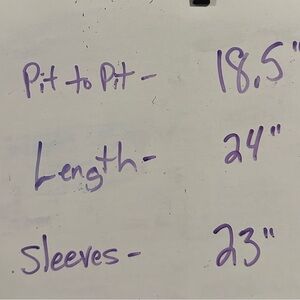 Pit to Pit - 18.5"
Length - 24"
Sleeves - 23"